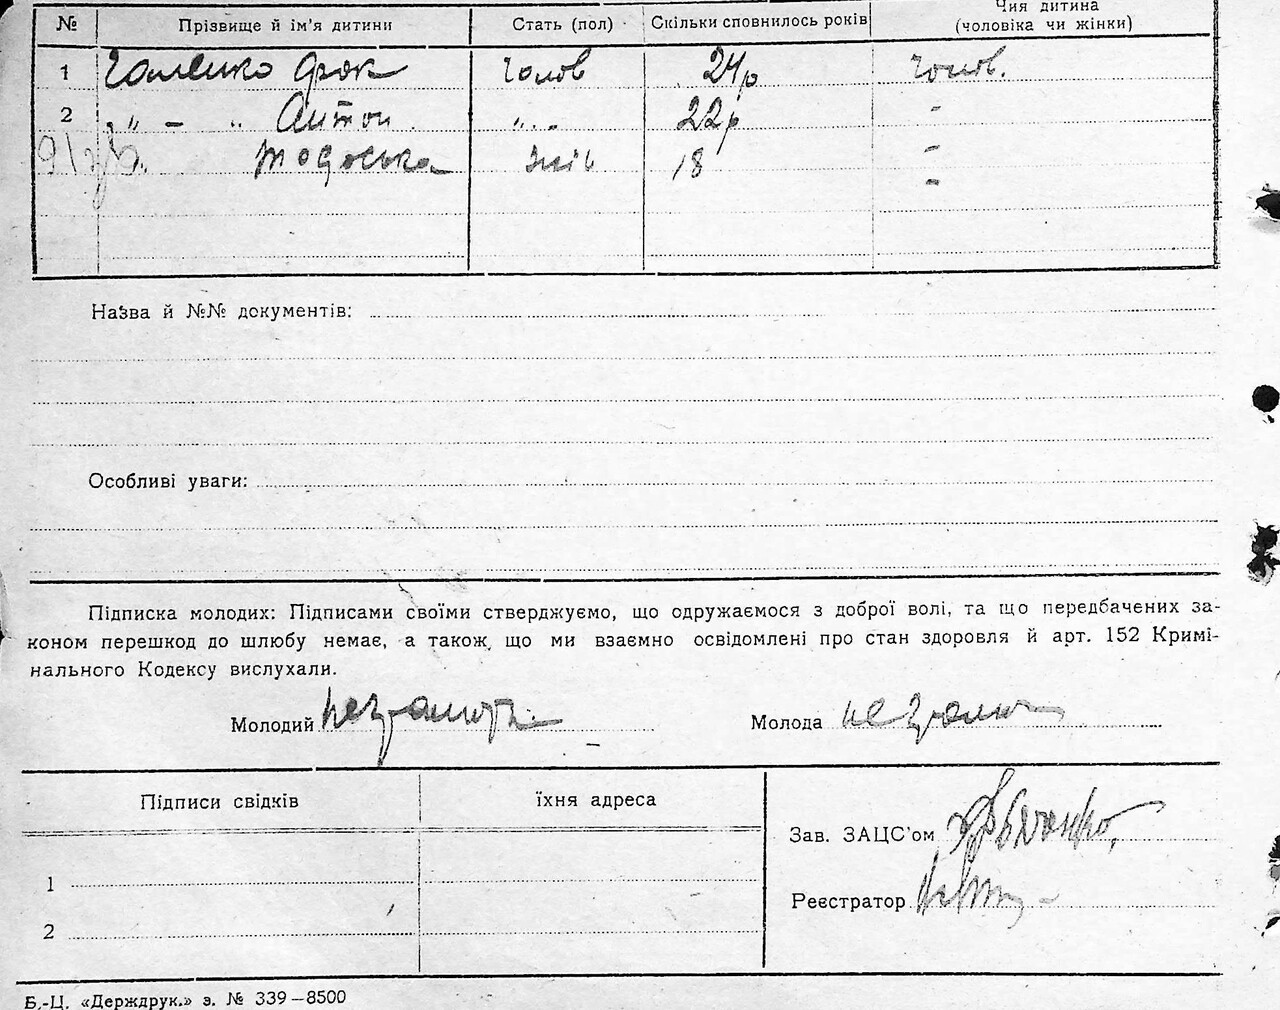 № Прізвище й ім'я дитини Стать (пол) Скільки сповнилось років Чия дитина (чоловіка чи жінки)
1 чолов 24р чолов.
2 „ – „ Антон „ . - 22р -
Тодоська жін 18 -
-
Назва й №№ документів:
Особливі уваги:
Підписка молодих: Підписами своїми стверджуємо, що одружаємося з доброї волі, та що передбачених за-
коном перешкод до шлюбу немає, а також, що ми взаємно освідомлені про стан здоровля й арт. 152 Кримі-
нального Кодексу вислухали.
Молодий Молода
Підписи свідків їхня адреса
Зав. ЗАЦС'ом
1
Реєстратор
2
Б.-Ц. «Держдрук.» з. № 339—8500